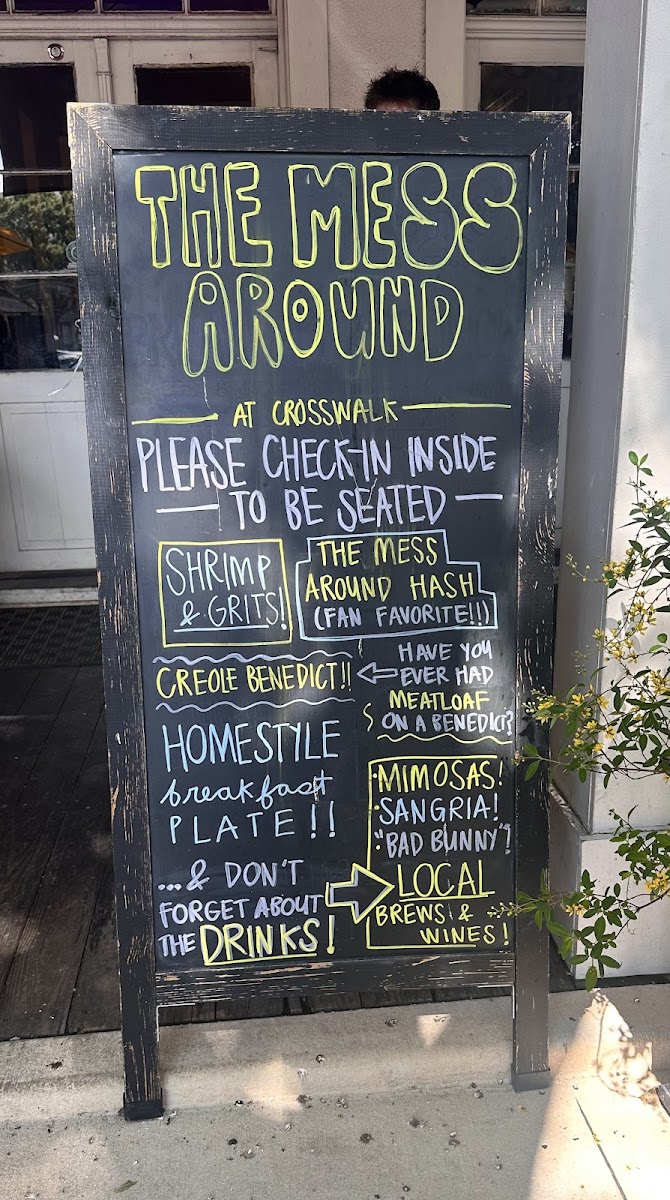 THE MESS
AROUND
AT CROSSWALK
PLEASE CHECK-IN INSIDE
TO BE SEATED
SHRIMP
& GRITS!
THE MESS
AROUND HASH
(FAN FAVORITE!!)
CREOLE BENEDICT!!
HAVE YOU
EVER HAD
MEATLOAF
ON A BENEDICT?
HOMESTYLE
breakfast
PLATE!!
...& DON'T
FORGET ABOUT
THE DRINKS!
•MIMOSAS!
•SANGRIA!
•"BAD BUNNY"!
LOCAL
BREWS &
WINES!